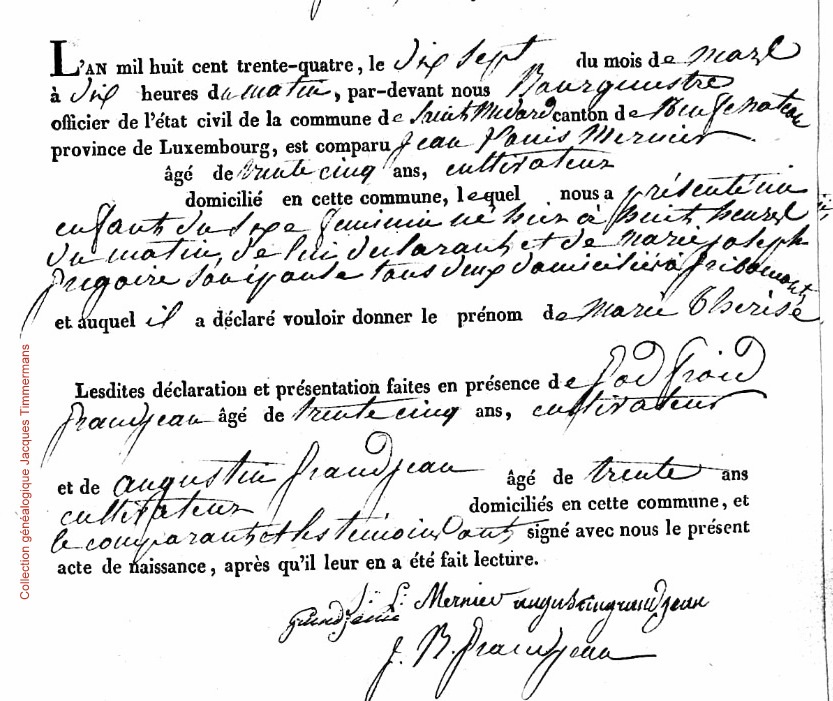 L'AN mil huit cent trente-quatre, le dix sept du mois de mars
à dix heures du matin, par-devant nous Bourguestre
officier de l'état civil de la commune de Saint Medard canton de Neufchateau
province de Luxembourg, est comparu Jean Louis Mernier
âgé de trente cinq ans, cultivateur
domicilié en cette commune, lequel nous a présenté un
enfant du sexe feminin né hier à huit heures
du matin, de lui declarant et de marie joseph
grégoire son épouse tous deux domiciliés à fribomont,
et auquel il a déclaré vouloir donner le prénom de marie thérise
Lesdites déclaration et présentation faites en présence de God froid
grandjean âgé de trente cinq ans, cultivateur
et de augustin grandjean âgé de trente ans
cultivateur domiciliés en cette commune, et
le comparant et les témoins ont signé avec nous le présent
acte de naissance, après qu'il leur en a été fait lecture.
J: L: Mernier augustingrandjean
grandjean
J. B. grandjean
Collection généalogique Jacques Timmermans